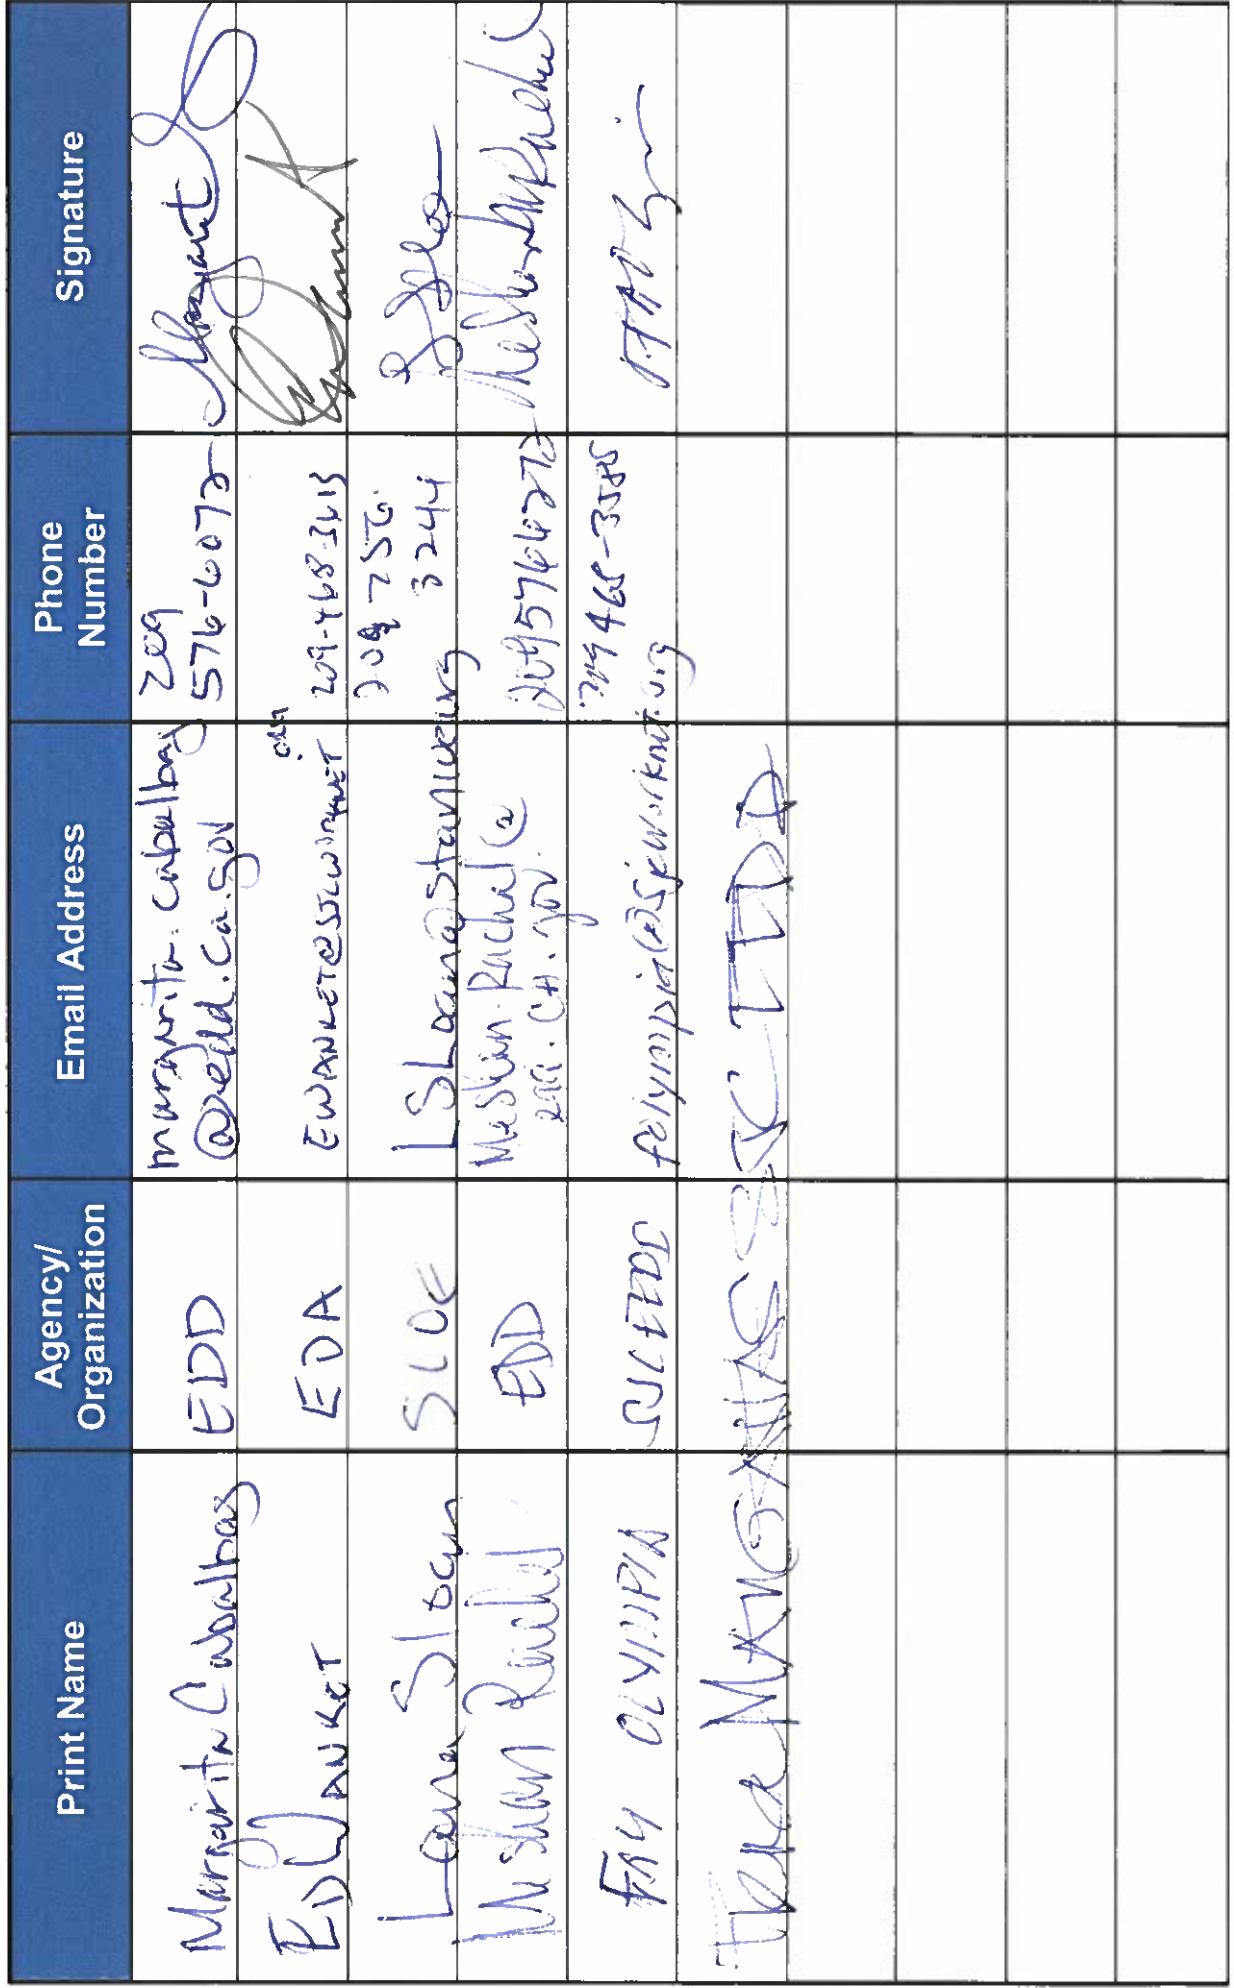 Print Name
Agency/
Organization
Email Address
Phone
Number
Signature
Margarita Cabalbag
EDD
margarita.cabalbag
@edd.ca.gov
209
576-6072
ED WANKET
EDA
EWANKET@SJCWORKNET
.ORG
209-468-3613
Lana Sloan
SCOE
LSloan@stanicoe.org
3244
Meshan Rachal
EDD
Meshan.Rachal@
edd.CA.gov
FAY OLYMPIA
SJCEEDD
folympia@sjcworknet.org
209 468-3585
SJC EEDD